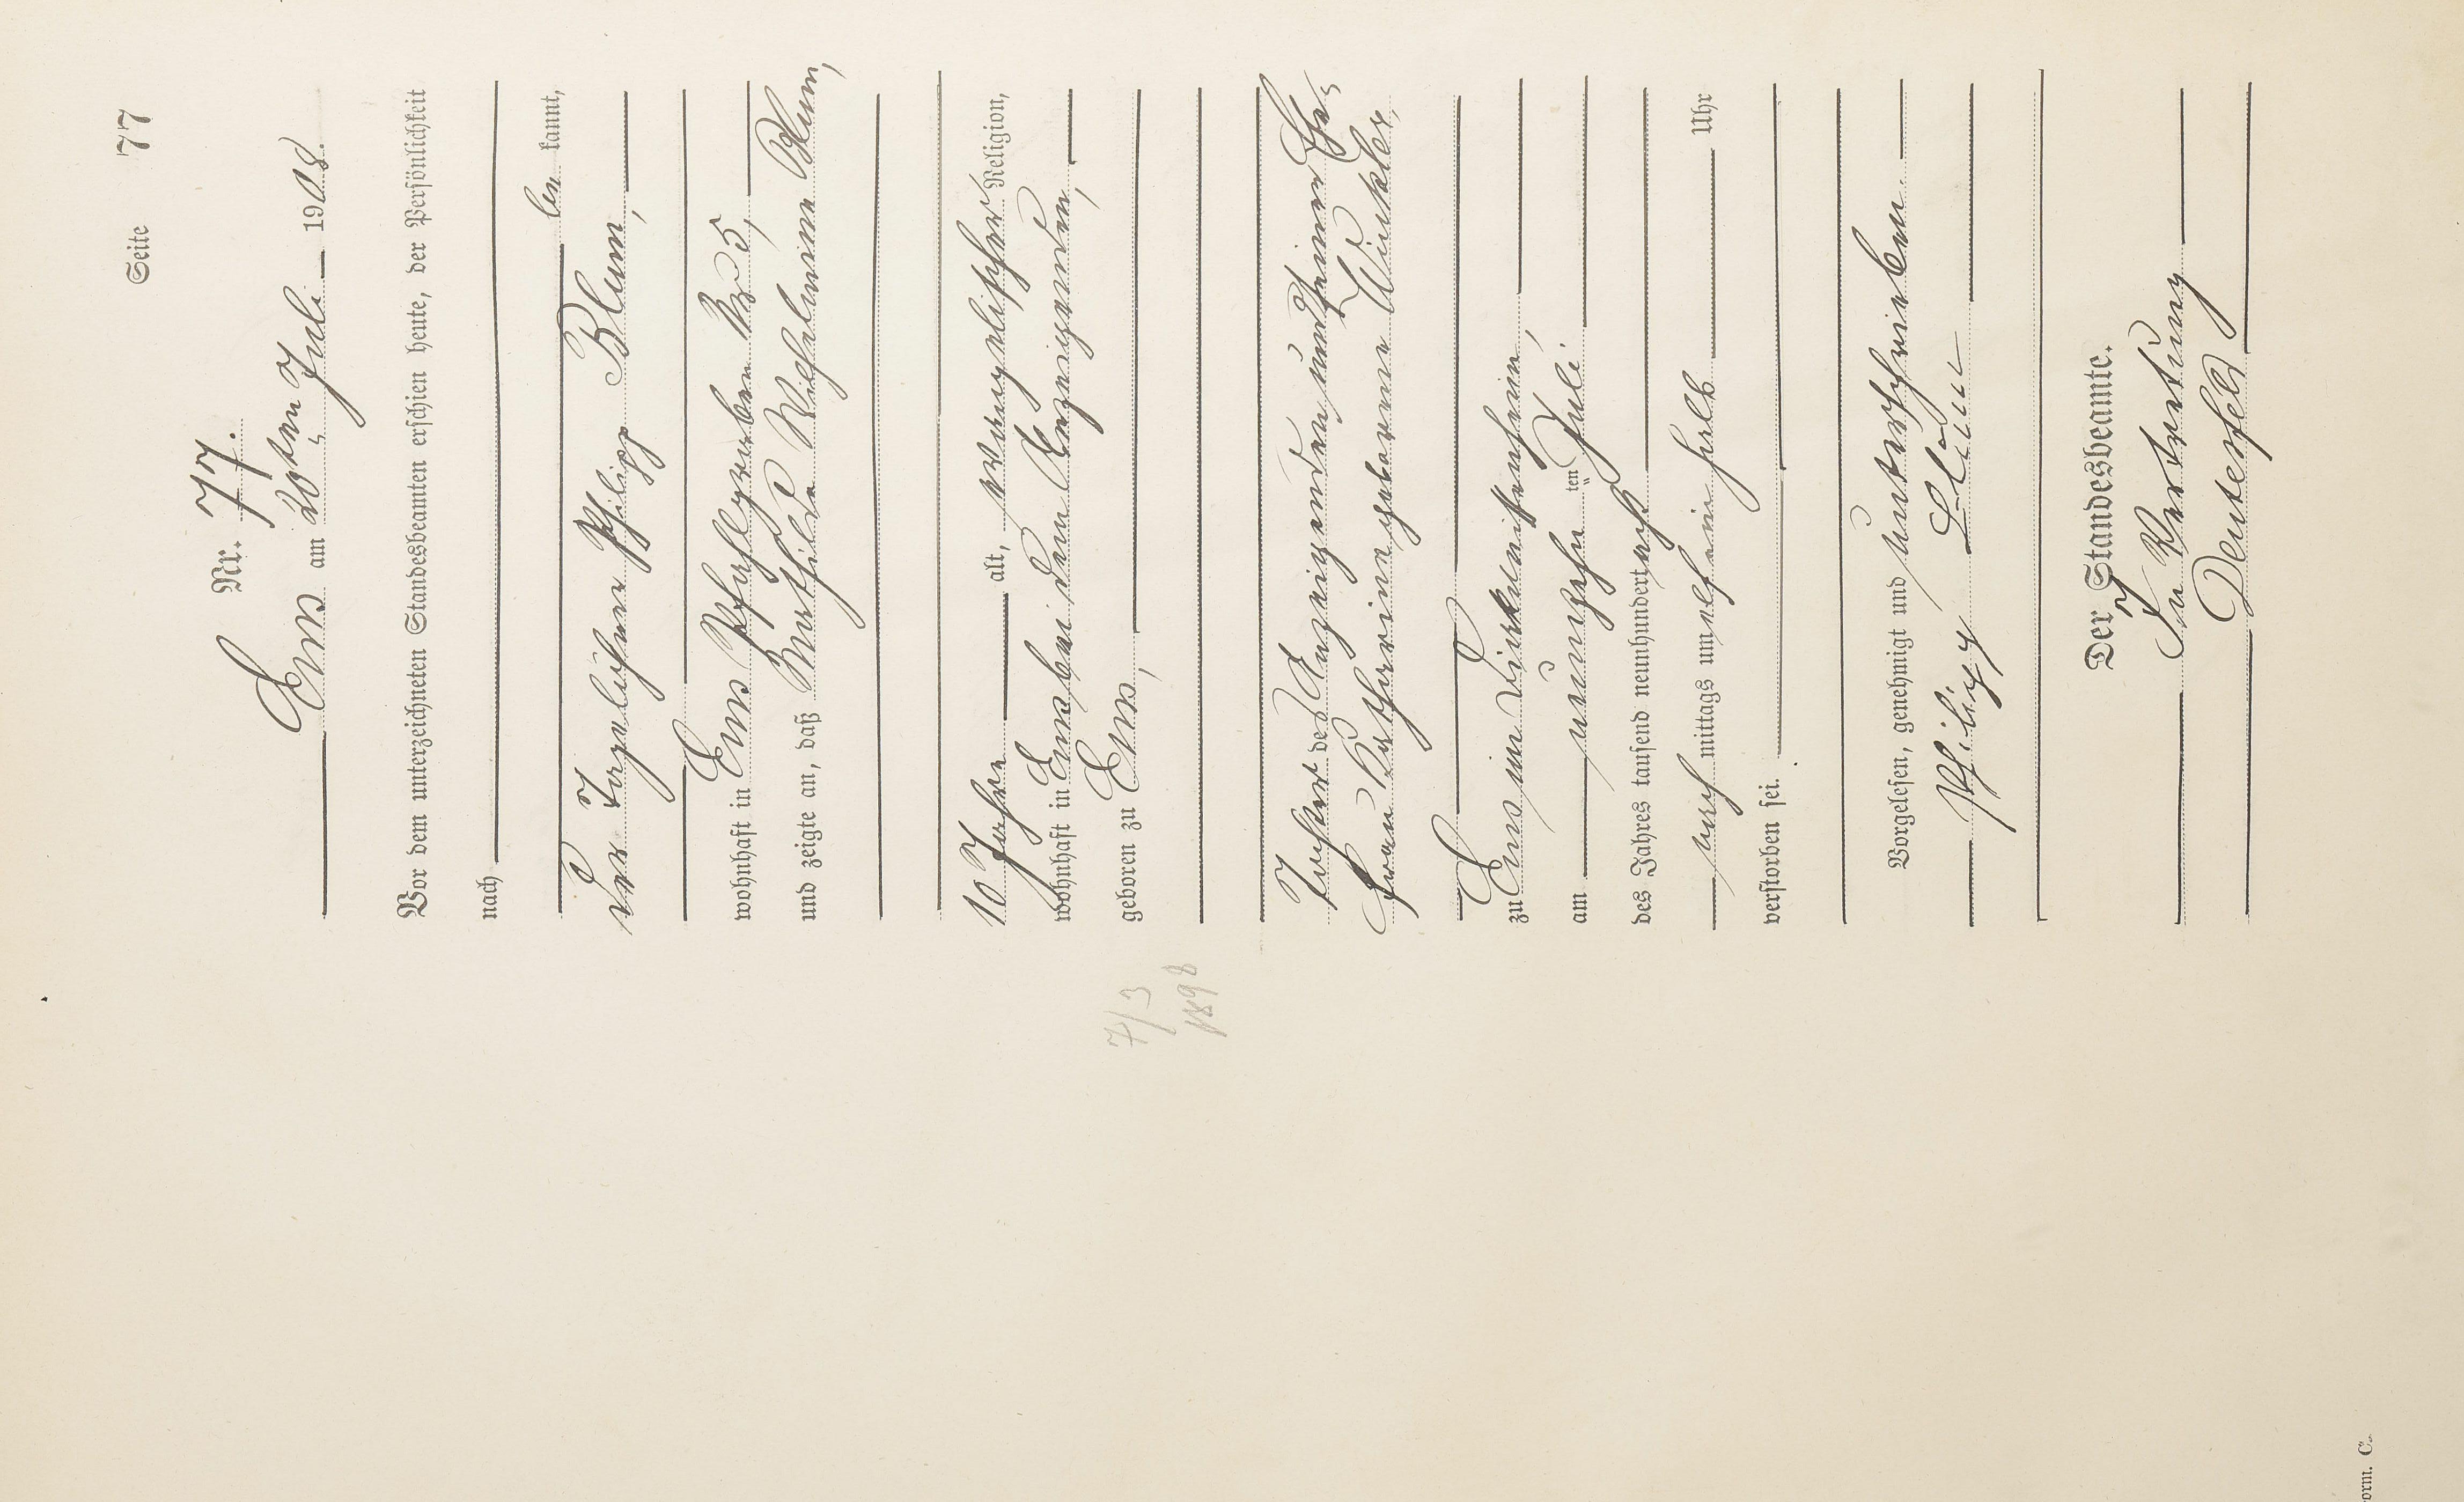 Seite 77
Nr. 77.
Ems am 20ten Juli 1908.
Vor dem unterzeichneten Standesbeamten erschien heute, der Persönlichkeit
nach
be kannt,
der Tagelöhner Philipp Blum,
wohnhaft in Ems Pfahlgraben No 5,
und zeigte an, daß Mathilde Wilhelmine Blum,
10 Jahre alt, evangelischer Religion,
wohnhaft in Ems bei dem Anzeigenden,
geboren zu Ems,
7/3
1898
Tochter des Anzeigenden und seiner Ehe-
frau Katharine geborene Winkler,
zu Ems im Diakonissenheim,
am neunzehnten Juli
des Jahres tausend neunhundert acht
nach mittags um elfeinhalb Uhr
verstorben sei.
Vorgelesen, genehmigt und unterschrieben.
Philipp Blum
Der Standesbeamte.
In Vertretung
orm. C.